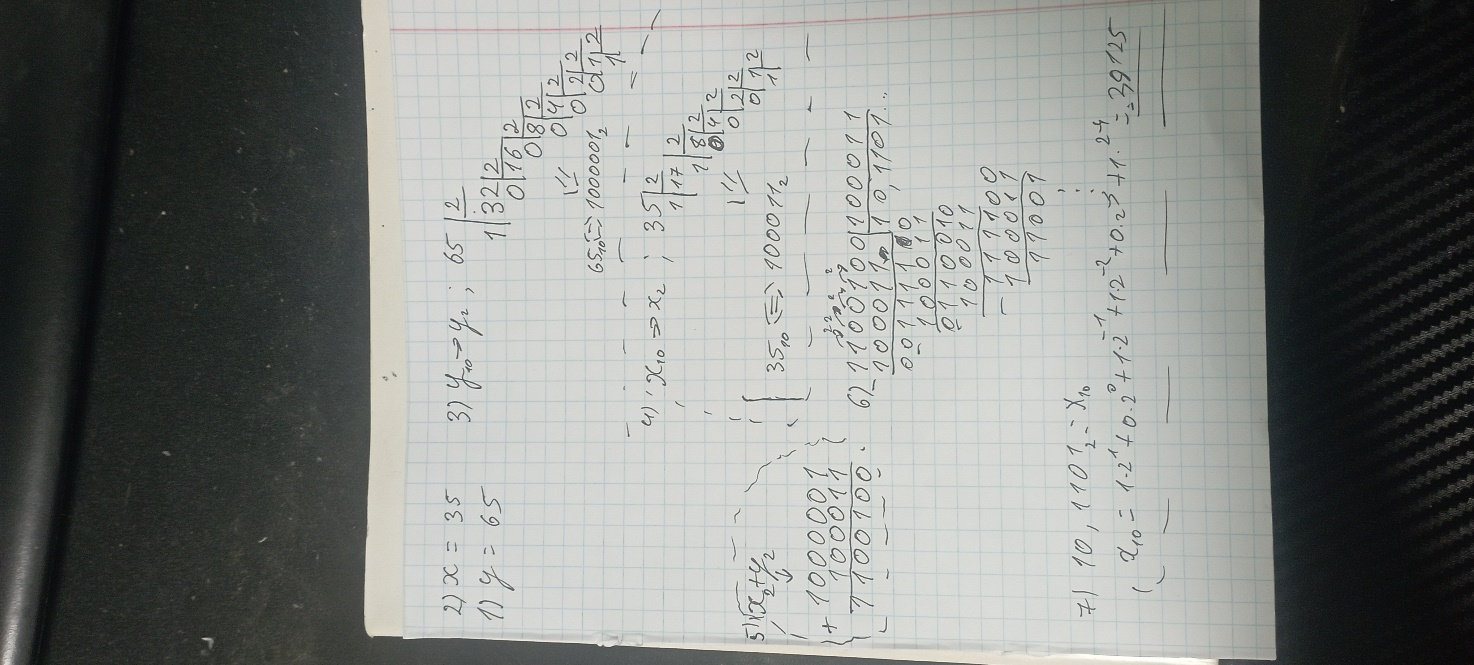 2) x = 35
1) y = 65
3) y₁₀ → y₂ ; 65 | 2
1 | 32 | 2
0 | 16 | 2
0 | 8 | 2
0 | 4 | 2
0 | 2 | 2
0 | 1 | 2
1
65₁₀ ⇔ 1000001₂
4) x₁₀ → x₂ ; 35 | 2
1 | 17 | 2
1 | 8 | 2
0 | 4 | 2
0 | 2 | 2
0 | 1 | 2
1
35₁₀ ⇔ 100011₂
5) x₂ + y₂
+ 1000001
100011
1100100
6) 1100100 | 100011
100011 | 10,1101...
0011110
100011
0110010
100011
- 111100
100011
11001
7) 10,1101₂ = x₁₀
x₁₀ = 1·2¹ + 0·2⁰ + 1·2⁻¹ + 1·2⁻² + 0·2⁻³ + 1·2⁻⁴ =
= 39125